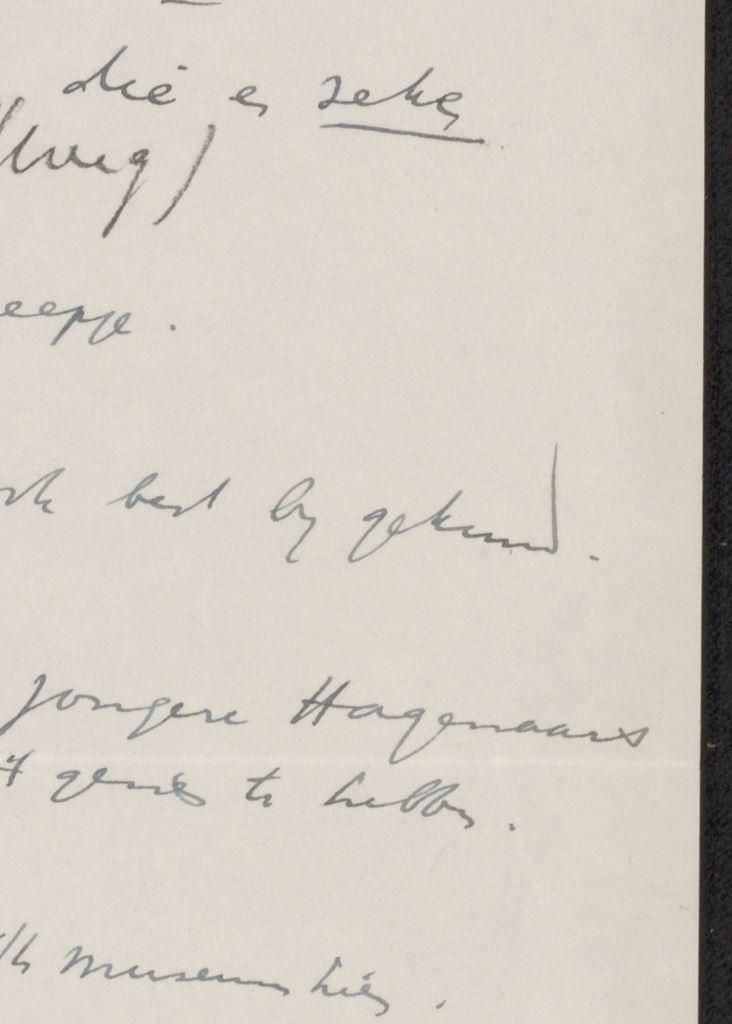 die er zeker
eepje.
ook best bij gekund.
jongere Hagenaars
genies te hebben.
museum hier.